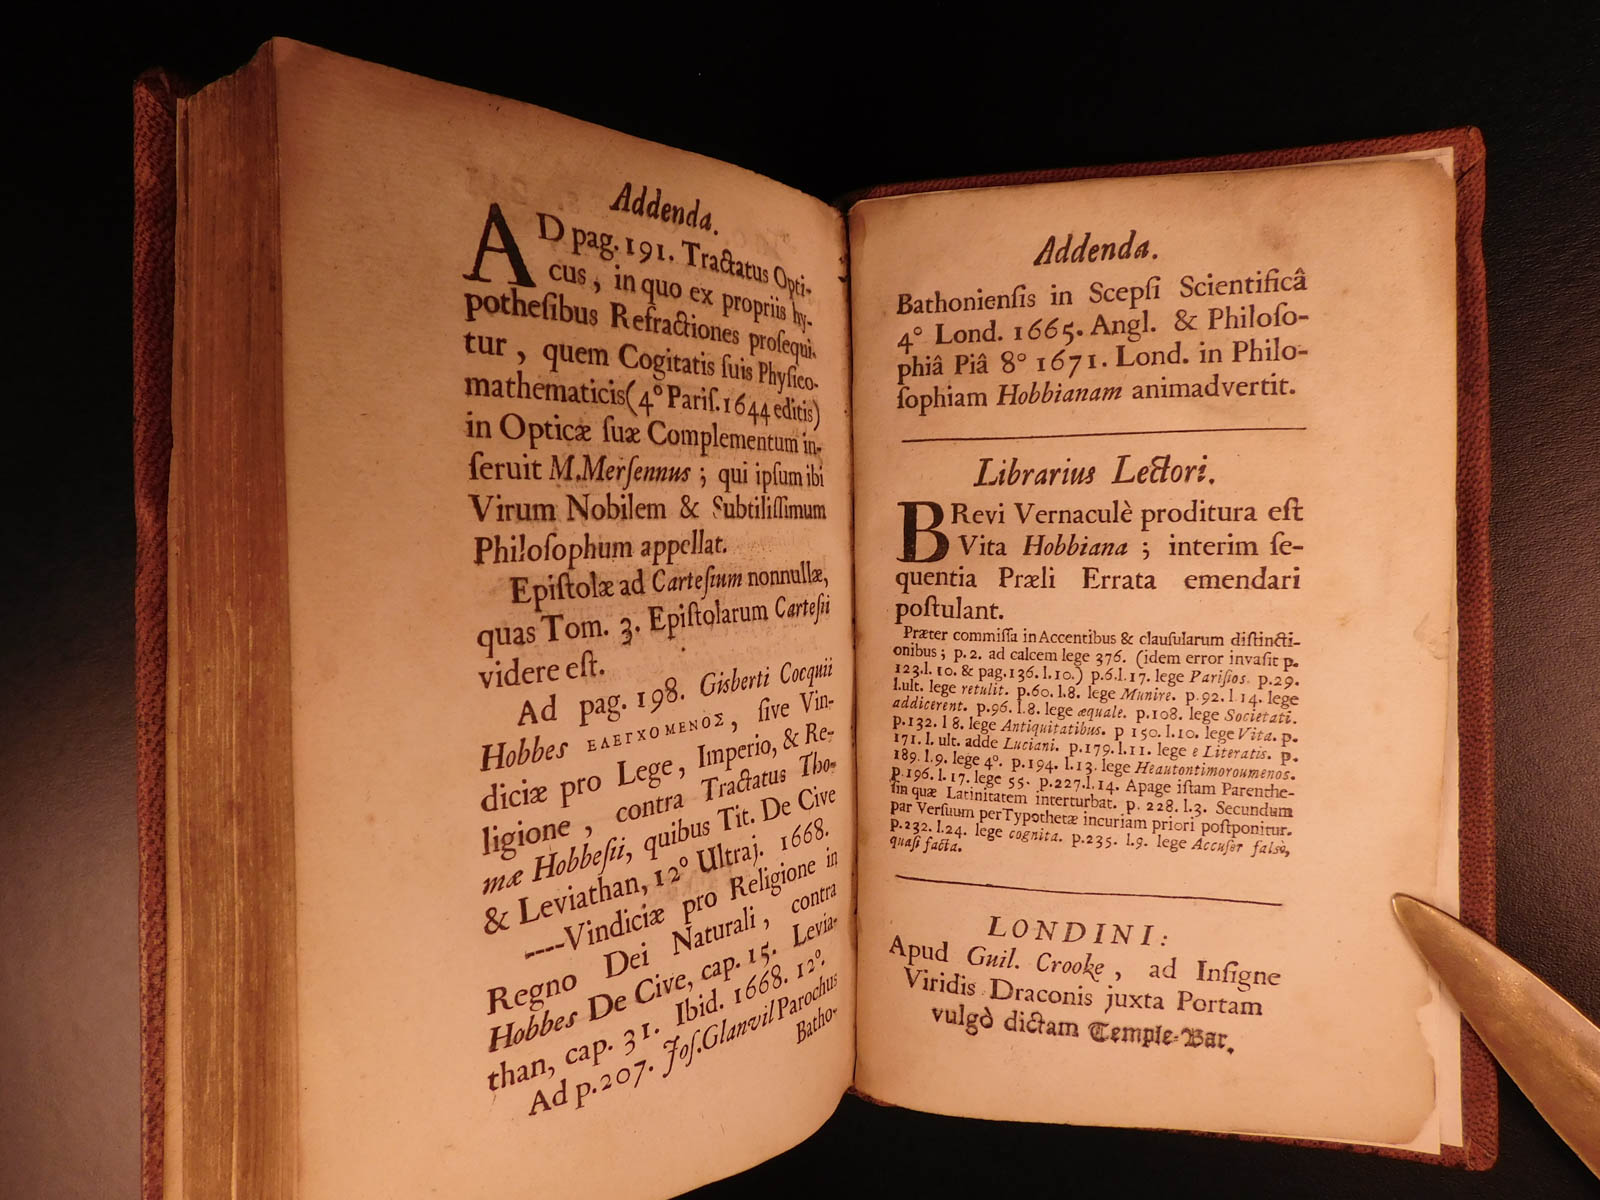 Addenda.
AD pag. 191. Tractatus Opti-
cus, in quo ex propriis hy-
pothesibus Refractiones prosequi-
tur, quem Cogitatis suis Physico-
mathematicis (4° Paris. 1644 editis)
in Opticæ suæ Complementum in-
seruit M. Mersennus; qui ipsum ibi
Virum Nobilem & Subtilissimum
Philosophum appellat.
Epistolæ ad Cartesium nonnullæ,
quas Tom. 3. Epistolarum Cartesii
videre est.
Ad pag. 198. Gisberti Cocquii
Hobbes ΕΛΕΓΧΟΜΕΝΟΣ, sive Vin-
diciæ pro Lege, Imperio, & Re-
ligione, contra Tractatus Tho-
mæ Hobbesii, quibus Tit. De Cive
& Leviathan, 12° Ultraj. 1668.
----Vindiciæ pro Religione in
Regno Dei Naturali, contra
Hobbes De Cive, cap. 15. Levia-
than, cap. 31. Ibid. 1668. 12°.
Ad p. 207. Jos. Glanvil Parochus
Batho-
Addenda.
Bathoniensis in Scepsi Scientificâ
4° Lond. 1665. Angl. & Philoso-
phiâ Piâ 8° 1671. Lond. in Philo-
sophiam Hobbianam animadvertit.
Librarius Lectori.
BRevi Vernaculè proditura est
Vita Hobbiana; interim se-
quentia Præli Errata emendari
postulant.
Præter commissa in Accentibus & clausularum distincti-
onibus; p. 2. ad calcem lege 376. (idem error invasit p.
123. l. 10. & pag. 136. l. 10.) p. 6. l. 17. lege Parisios. p. 29.
l. ult. lege retulit. p. 60. l. 8. lege Munire. p. 92. l. 14. lege
addicerent. p. 96. l. 8. lege æquale. p. 108. lege Societati.
p. 132. l 8. lege Antiquitatibus. p 150. l. 10. lege Vita. p.
171. l. ult. adde Luciani. p. 179. l. 11. lege e Literatis. p.
189. l. 9. lege 4°. p. 194. l. 13. lege Heautontimoroumenos.
p. 196. l. 17. lege 55. p. 227. l. 14. Apage istam Parenthe-
sin quæ Latinitatem interturbat. p. 228. l. 3. Secundum
par Versuum per Typothetæ incuriam priori postponitur.
p. 232. l. 24. lege cognita. p. 235. l. 9. lege Accuser falsè,
quasi facta.
LONDINI:
Apud Guil. Crooke, ad Insigne
Viridis Draconis juxta Portam
vulgò dictam Temple-Bar.